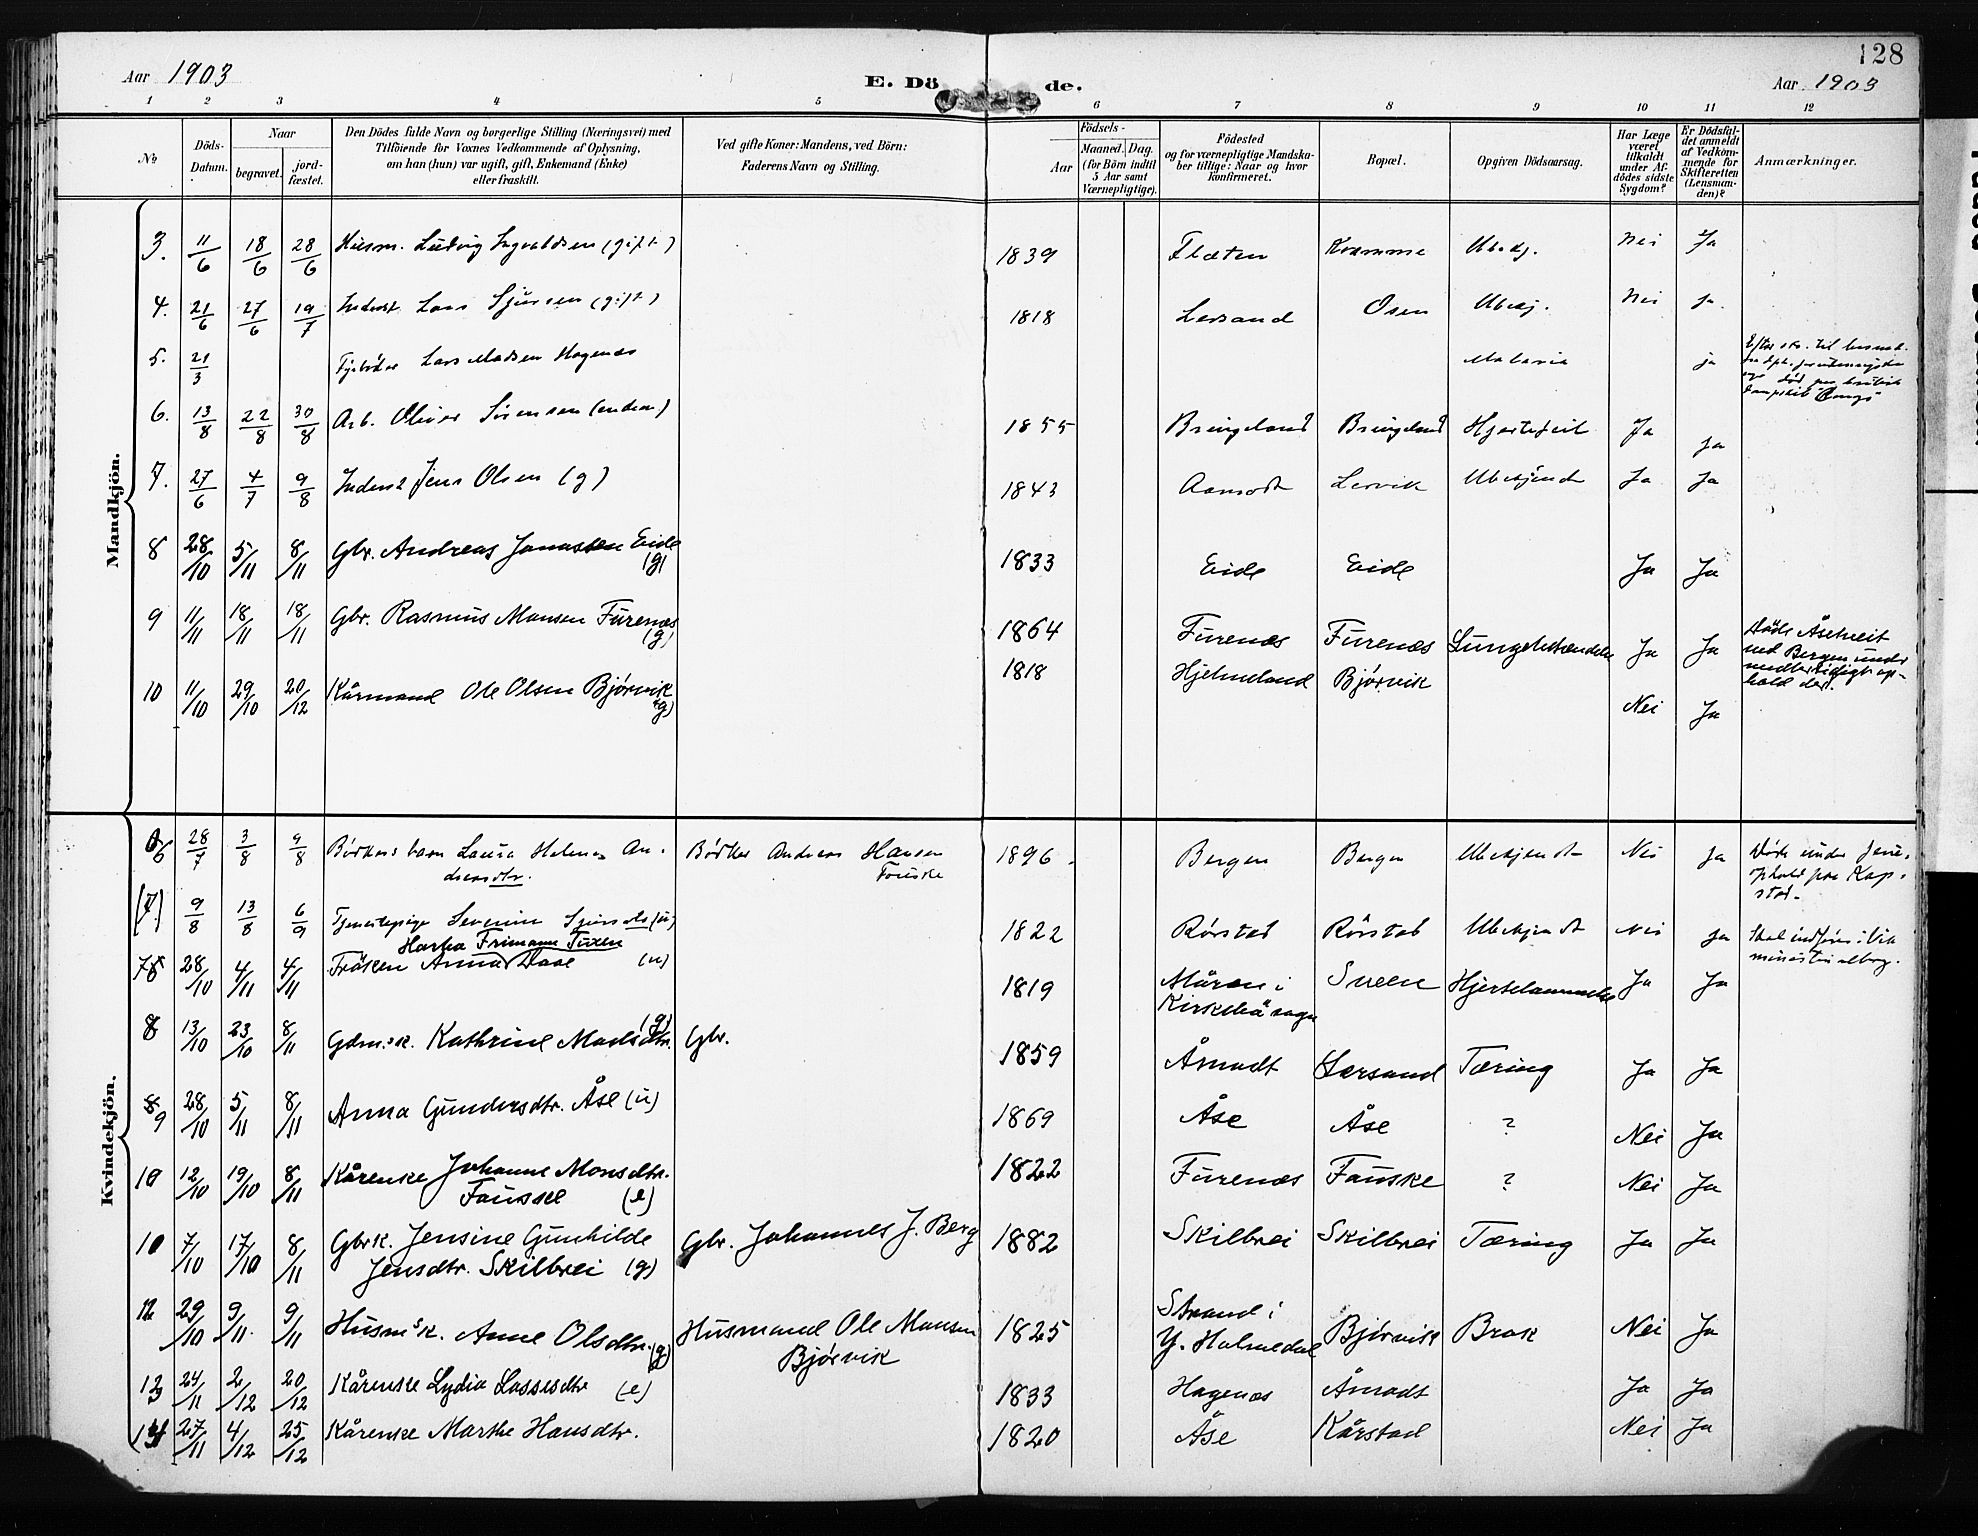 128
Aar 1903
E. Dö de.
Aar 1903
1 2 3 4 5 6 7 8 9 10 11 12
No
Döds-Datum.
Naar
begravet.
jord-fæstet.
Den Dödes fulde Navn og borgerlige Stilling (Næringsvei) med
Tilföiende for Voxnes Vedkommende af Oplysning,
om han (hun) var ugift, gift, Enkemand (Enke)
eller fraskilt.
Ved gifte Koner: Mandens, ved Börn:
Faderens Navn og Stilling.
Födsels-
Aar
Maaned. Dag.
(for Börn indtil
5 Aar samt
Værnepligtige).
Födested
og for værnepligtige Mandska-
ber tillige: Naar og hvor
konfirmeret.
Bopæl.
Opgiven Dödsaarsag.
Har Læge
været
tilkaldt
under Af-
dödes sidste
Sygdom?
Er Dödsfal-
det anmeldt
af Vedkom-
mende for
Skifteretten
(Lensman-
den)?
Anmærkninger.
Mandkjön.
3. 11/6 18/6 28/6 Husm. Ludvig Ingvaldsen (gift) 1839 Flæten Kvamme Ubekj. Nei Ja
4. 21/6 27/6 19/7 Inderst Lars Sjursen (gift) 1818 Lersand Osen Ubekj. Nei Ja
5. 21/3 Lars Madsen Hagenæs Malaria ja
6. 13/8 22/8 30/8 Arb. Oliver Sörensen 1855 Bringeland Bringeland Hjertefeil Ja ja
7. 27/6 4/7 9/8 Inderst Jens Olsen (g) 1843 Aamodt Lervik Ubekjendt Ja Ja
8 28/10 5/11 8/11 Gbr. Andreas Jonassen Eide
(g) 1833 Eide Eide Ja Ja
9 11/11 18/11 18/11 Gbr. Rasmus Monsen Furenæs
(g) 1864 Furenæs Furenæs Lungebetændelse Ja Ja Døde Åsetveit
ved Bergen under
midlertidigt op-
hold der.
10 11/10 29/10 20/12 Kårmand Ole Olsen Bjørvik
(g) 1818 Hjelmeland Bjørvik Nei Ja
Kvindekjön.
6 28/7 3/8 9/8 Bødkers barn Laura Helene An-
dreasdtr. Bødker Andreas Hansen
Fauske 1896 Bergen Bergen Ubekjendt Nei ja Døde under
ophold paa Kap-
stad.
(7) 9/8 13/8 6/9 Tjenestepige Severine Sjursdtr (u) 1822 Rörstad Rörstad Ubekjendt Nei ja Skal indføres i Vik
ministerialbog.
Hartha Frimann Tuxen
7 28/10 4/11 4/11 Fröken Anna Daae (u) 1819 Måren i
Kirkebö sogn Sveen Hjertelammelse Ja Ja
8 13/10 23/10 8/11 Gdm.sk. Kathrine Madsdtr. (g) Gbr. 1859 Åmodt Lersand Tæring Ja Ja
9 28/10 5/11 8/11 Anna Gundersdtr. Åse (u) 1869 Åse Åse ? Nei Ja
10 12/10 19/10 8/11 Kårenke Johanne Monsdtr.
Fauske (e) 1822 Furenæs Fauske ? Nei Ja
10 7/10 17/10 8/11 Gbrk. Jensine Gunhilde
Jensdtr. Skilbrei (g) Gbr. Johannes J. Berg 1882 Skilbrei Skilbrei Tæring Ja Ja
12 29/10 9/11 9/11 Husmsk. Anne Olsdtr.
(g) Husmand Ole Monsen
Bjørvik 1825 Strand i
Y. Holmedal Bjørvik Brok Nei Ja
13 24/11 2/12 20/12 Kårenke Lydia Lassesdtr (e) 1833 Hagenæs Åmodt Ja Ja
14 27/11 4/12 25/12 Kårenke Marthe Hansdtr. 1820 Åse Kårstad Nei Ja